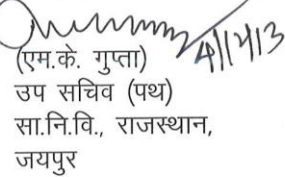 4/12/13
(एम.के. गुप्ता)
उप सचिव (पथ)
सा.नि.वि., राजस्थान,
जयपुर